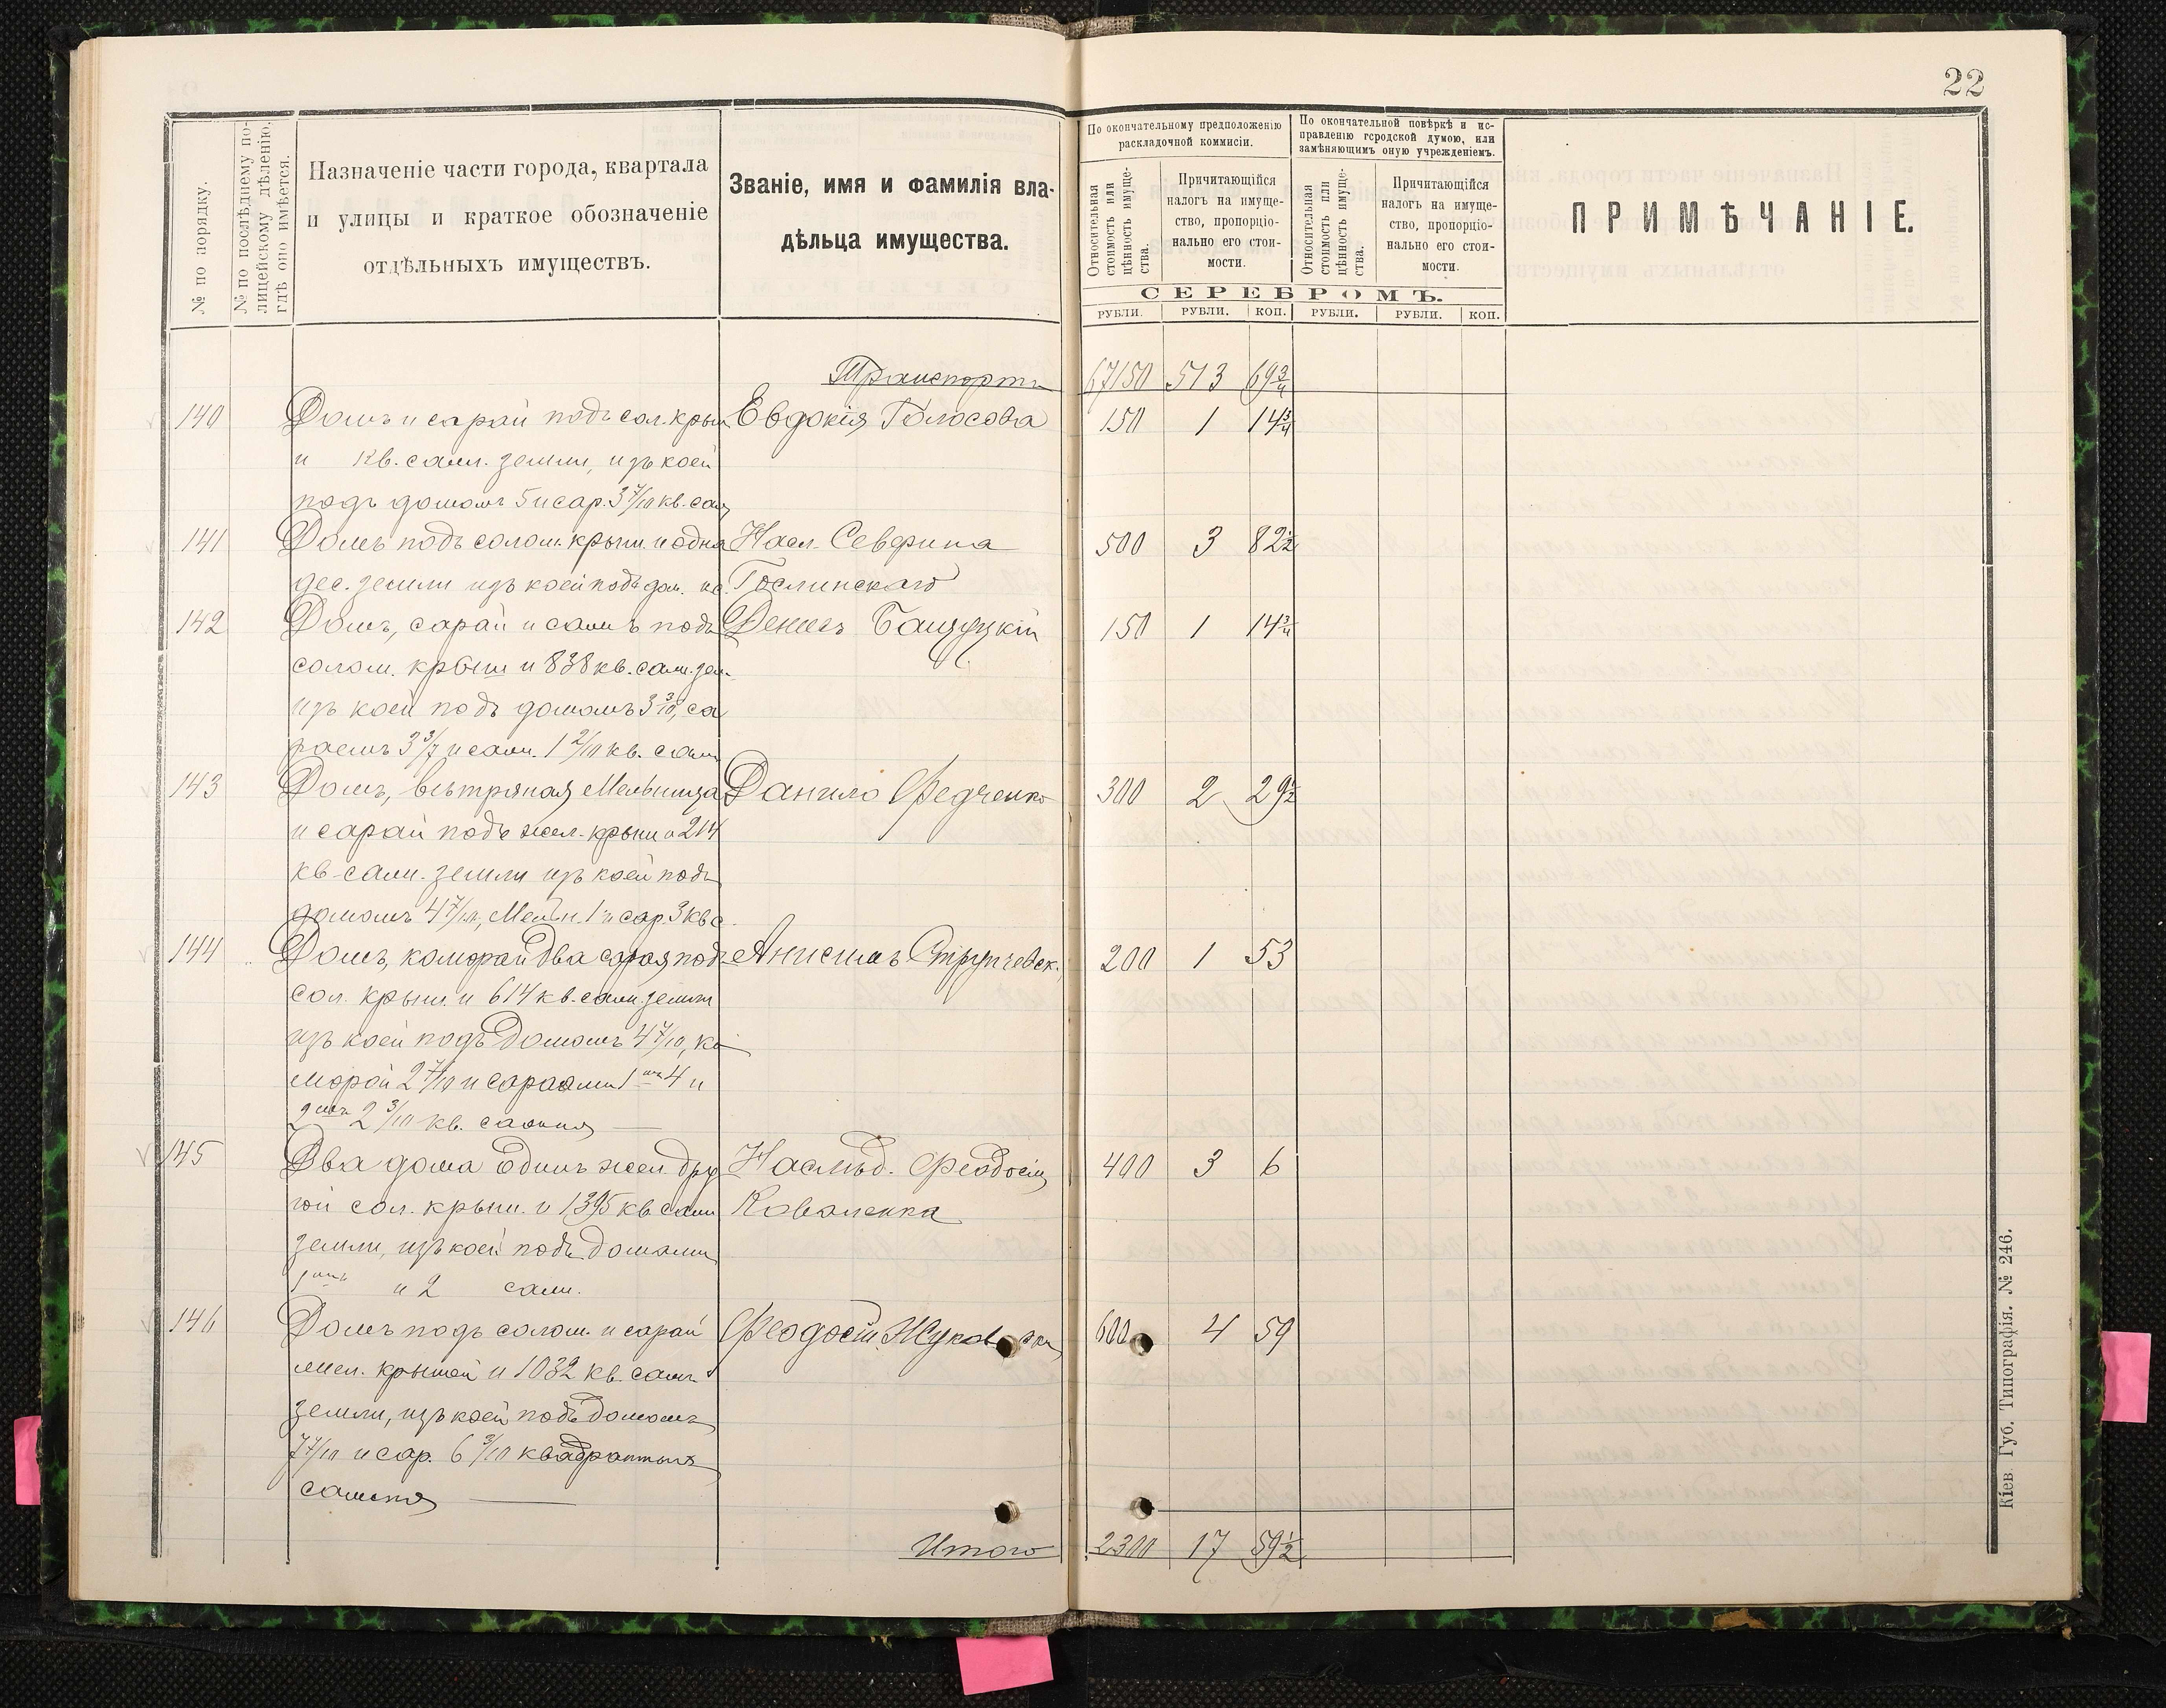 22
№ по порядку.
№ по послѣднему по-
лицейскому дѣленію,
гдѣ оно имѣется.
Назначеніе части города, квартала
и улицы и краткое обозначеніе
отдѣльныхъ имуществъ.
Званіе, имя и фамилія вла-
дѣльца имущества.
По окончательному предположенію
раскладочной коммисіи.
Относительная
стоимость или
цѣнность имуще-
ства.
Причитающійся
налогъ на имуще-
ство, пропорціо-
нально его стои-
мости.
По окончательной повѣркѣ и ис-
правленію городской думою, или
замѣняющимъ оную учрежденіемъ.
Относительная
стоимость или
цѣнность имуще-
ства.
Причитающійся
налогъ на имуще-
ство, пропорціо-
нально его стои-
мости.
СЕРЕБРОМЪ.
РУБЛИ. РУБЛИ. КОП. РУБЛИ. РУБЛИ. КОП.
ПРИМѢЧАНІЕ.
Транспортъ 67150 513 69¾
140 Домъ и сарай подъ сол. крыш Евдокія Голосова 150 1 14¾
и кв. саж. земли, изъ коей
подъ домомъ 5 и сар. 3 7/10 кв. саж
141 Домъ подъ солом. крыш. и одна Насл. Северина 500 3 82½
дес. земли изъ коей подъ дом. Гослинскаго
142 Домъ, сарай и саж ъ подъ Денисъ 150 1 14¾
солом. крыш и 838 кв. саж. зем.
изъ коей подъ домомъ 3 3/10, са
раемъ 3 3/7 и саж. 1 2/10 кв. саж
143 Домъ, вѣтряная Мельница Данило Федченко 300 2 29½
и сарай подъ жел. крыш и 214
кв. саж. земли изъ коей подъ
домомъ 4 7/10, Мельн. 1 и сар. 3 кв с.
144 Домъ, коморай два сарая подъ Анисимъ 200 1 53
сол. крыш. и 614 кв. саж. земли
изъ коей подъ Домомъ 4 7/10, ко
морой 2 7/10 и сараями 1мъ 4 и
2мъ 2 3/10 кв. сажня
145 Два дома Единъ жел. дру Наслѣд. Феодосія 400 3 6
гой сол. крыш. и 1395 кв саж Коваленка
земли, изъ коей подъ Домами
1мъ и 2 саж.
146 Домъ подъ солом. и сарай Феодосій 600 4 59
жел. крышей и 1032 кв. саж.
земли, изъ коей подъ Домомъ
7 7/10 и сар. 6 3/10 квадратныхъ
сажня
Итого 2300 17 59½
Кіев. Губ. Типографія. № 246.